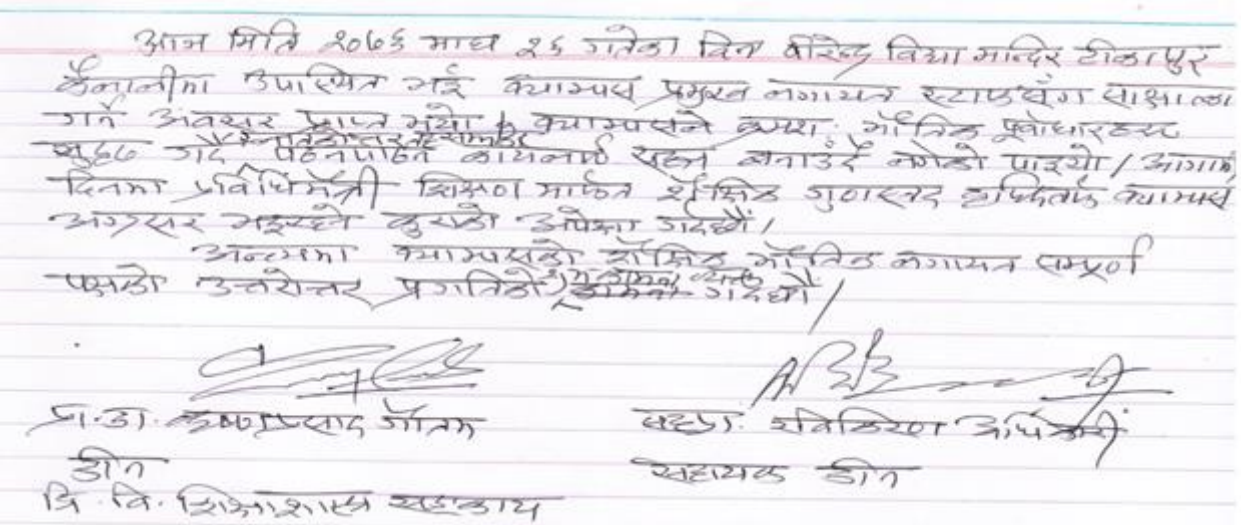 आज मिति २०७६ माघ २६ गतेका दिन वीरेन्द्र विद्या मन्दिर टीकापुर
कैलालीमा उपस्थित भई क्याम्पस प्रमुख लगायत स्टाफसँग साक्षात्कार
गर्ने अवसर प्राप्त भयो । क्याम्पसले क्रमशः भौतिक पूर्वाधारहरू
सुदृढ गर्दै स्नातकोत्तर तह सम्मको पठनपाठन कार्यलाई सहज बनाउँदै लगेको पाइयो । आगामी
दिनमा प्रविधिमैत्री शिक्षण मार्फत शैक्षिक गुणस्तर बृद्धितर्फ क्याम्पस
अग्रसर भइरहने कुराको अपेक्षा गर्दछौं ।
अन्त्यमा क्याम्पसको शैक्षिक भौतिक लगायत सम्पूर्ण
पक्षको उत्तरोत्तर प्रगतिको शुभकामना व्यक्त गर्दछौं ।
प्रा.डा. कृष्णप्रसाद गौतम
सहप्रा. रविकिरण अधिकारी
डीन
सहायक डीन
त्रि. वि. शिक्षाशास्त्र सङ्काय